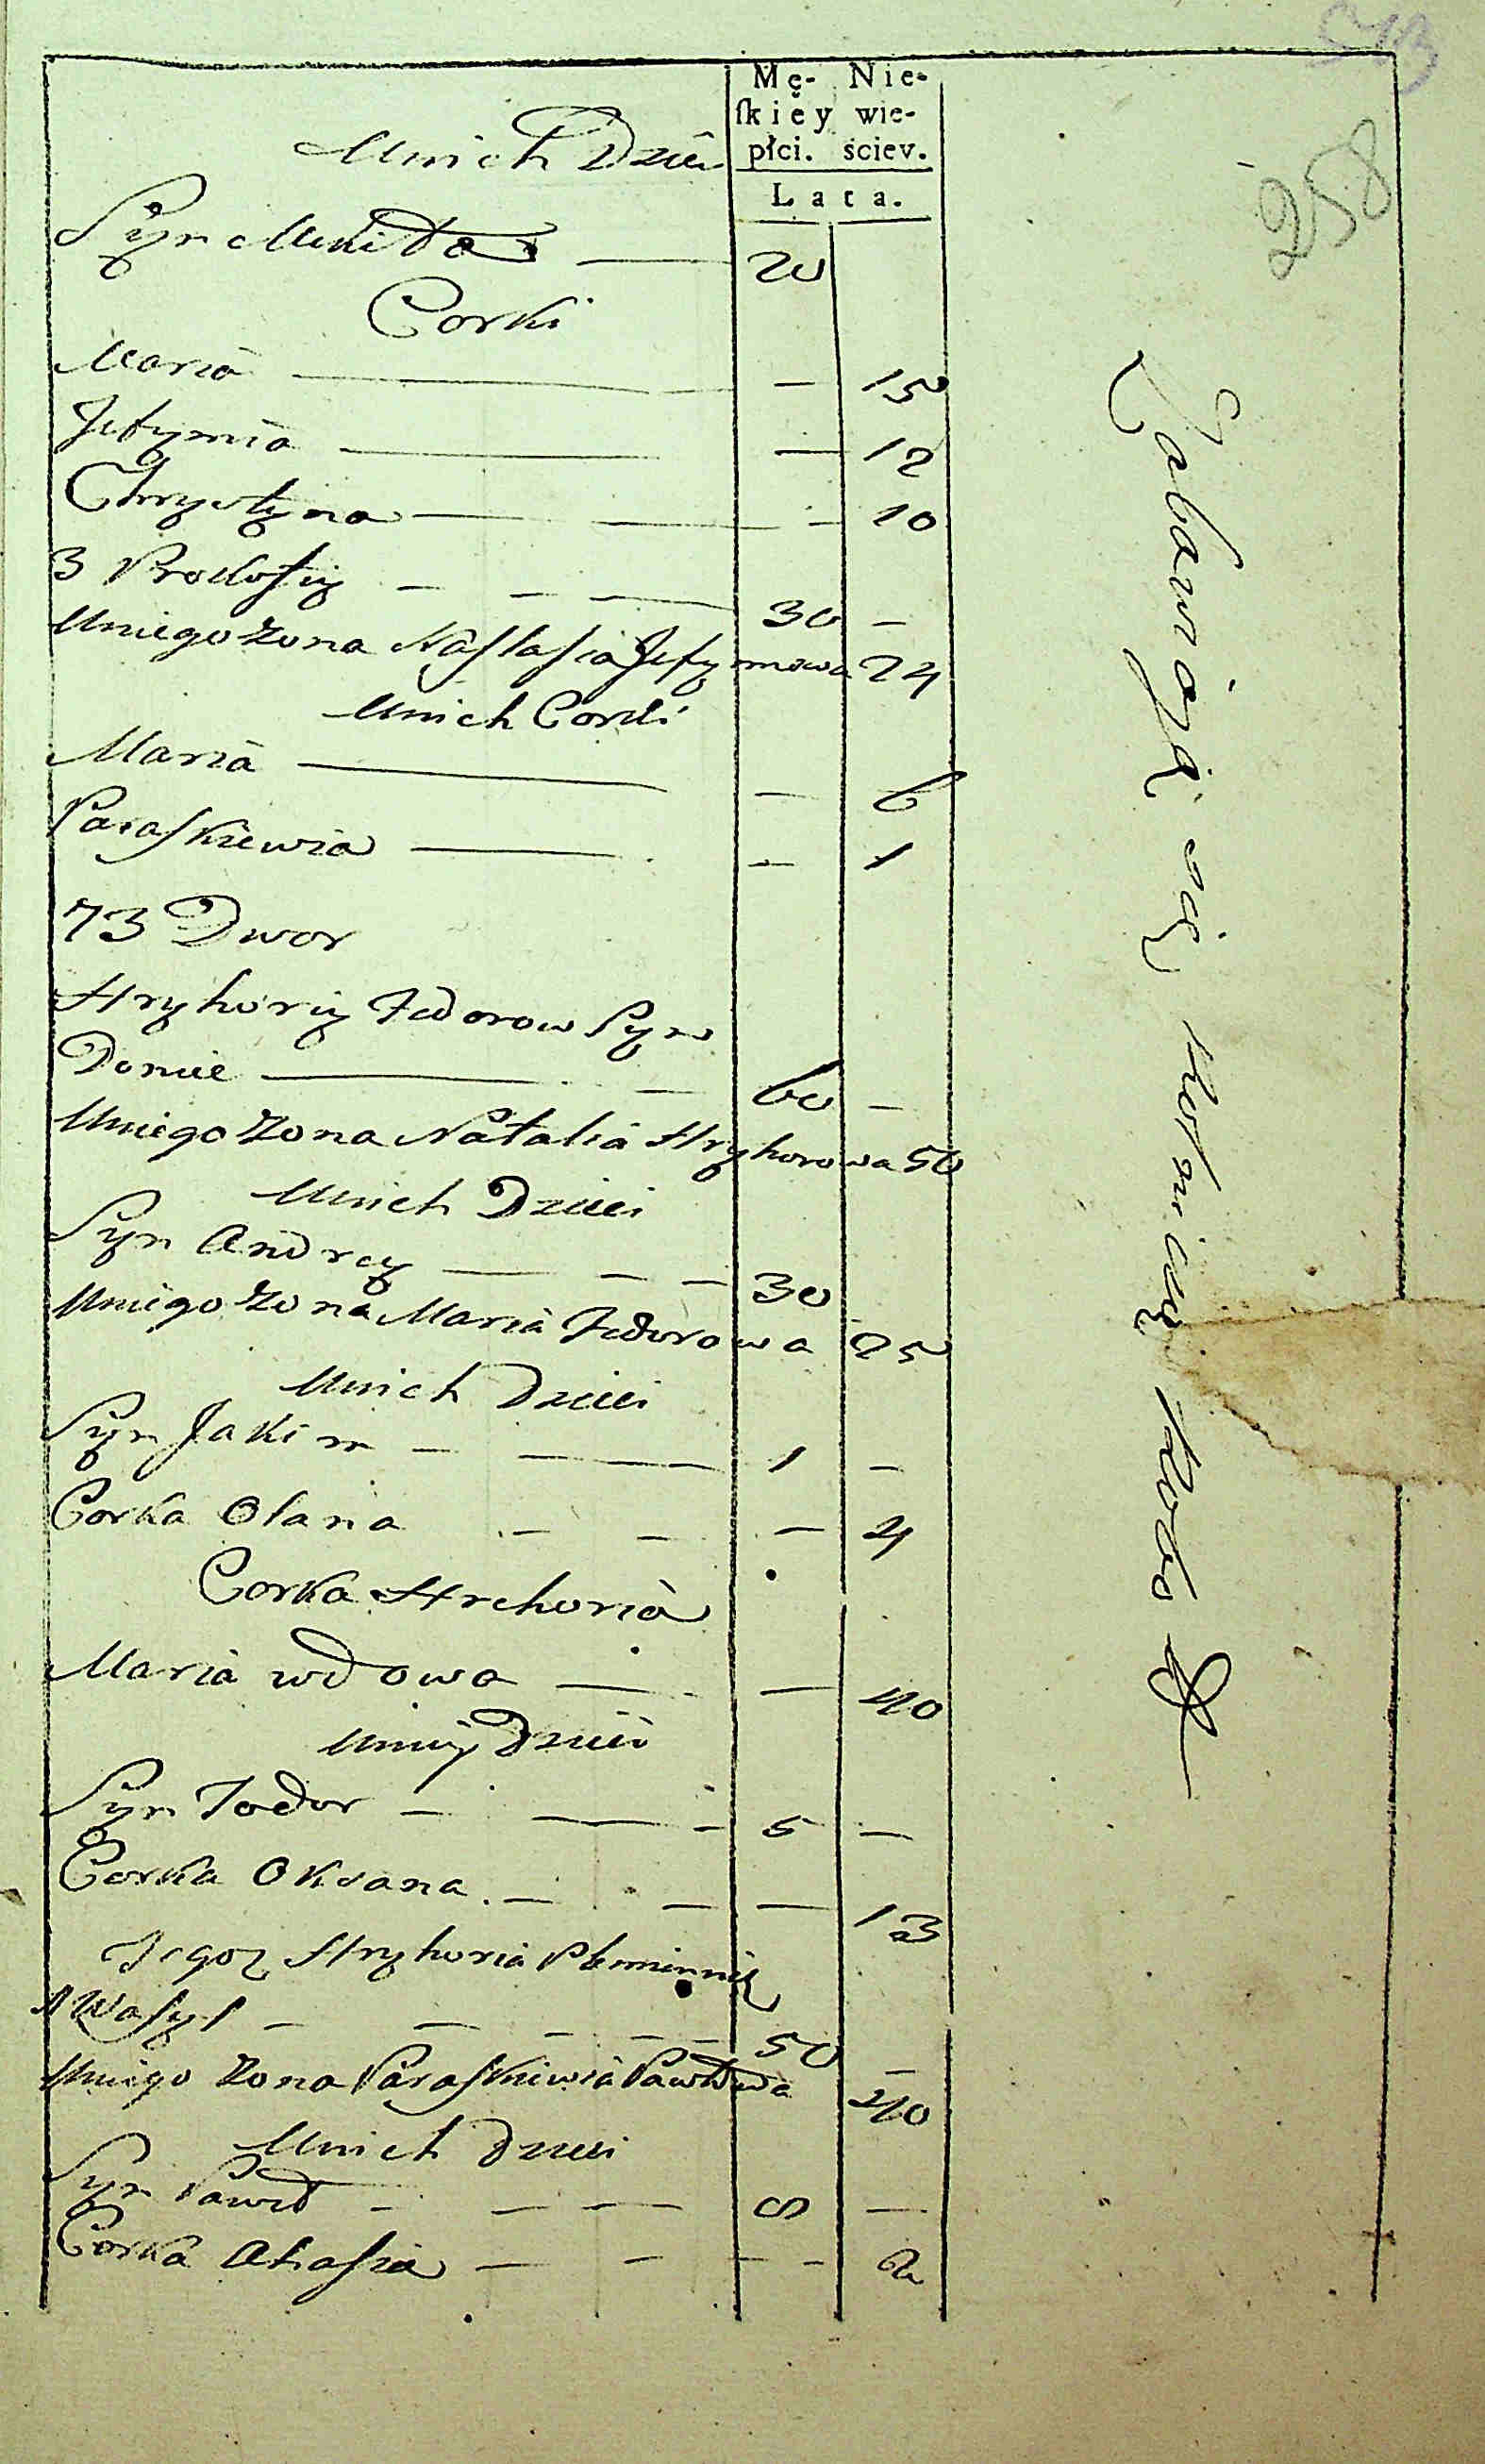 513
258
Mę- Nie-
ſkiey wie-
płci. ściey.
Lata.
Unich Dzieci
Syn Mikita — 20
Corki
Maria — — 15
Jefymia — — 12
Chrystyna — — — 10
3 Prokofiy — — — 30 —
Uniego zona Nastasia Jefymowa 24
Unich Corki
Maria — — 6
Paraskiewia — — 1
73 Dwor
Hryhoriy Fedorow Syn
— — 60 —
Uniego zona Natalia Hryhorowa 50
Unich Dzieci
Syn Andrey — — — 30
Uniego zona Maria Fedorowa 25
Unich Dzieci
Syn Jakim — — 1 —
Corka Olana — — — 4
Corka Hrehoria
Maria wdowa — — 40
Uniey Dzieci
Syn Fodor — — — 5 —
Corka Oksana — — — 13
Jegoz Hryhoria Plemiennik
1 Wasyl — — — — — 50 —
Uniego zona Paraskiewia Pawłowa 40
Unich Dzieci
Syn Paweł — — — 8 —
Corka Ahafia — — — — 2
Zabawiaią się rolnictwem